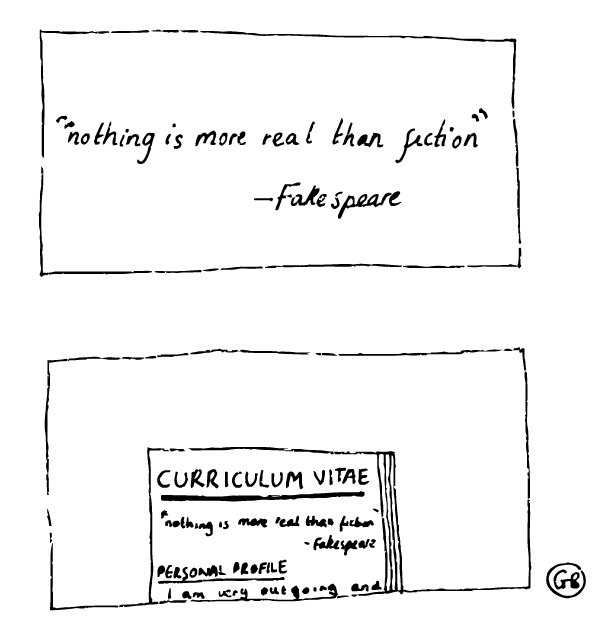 "nothing is more real than fiction"
-Fakespeare
CURRICULUM VITAE
"nothing is more real than fiction"
-Fakespeare
PERSONAL PROFILE
I am very outgoing and
GB